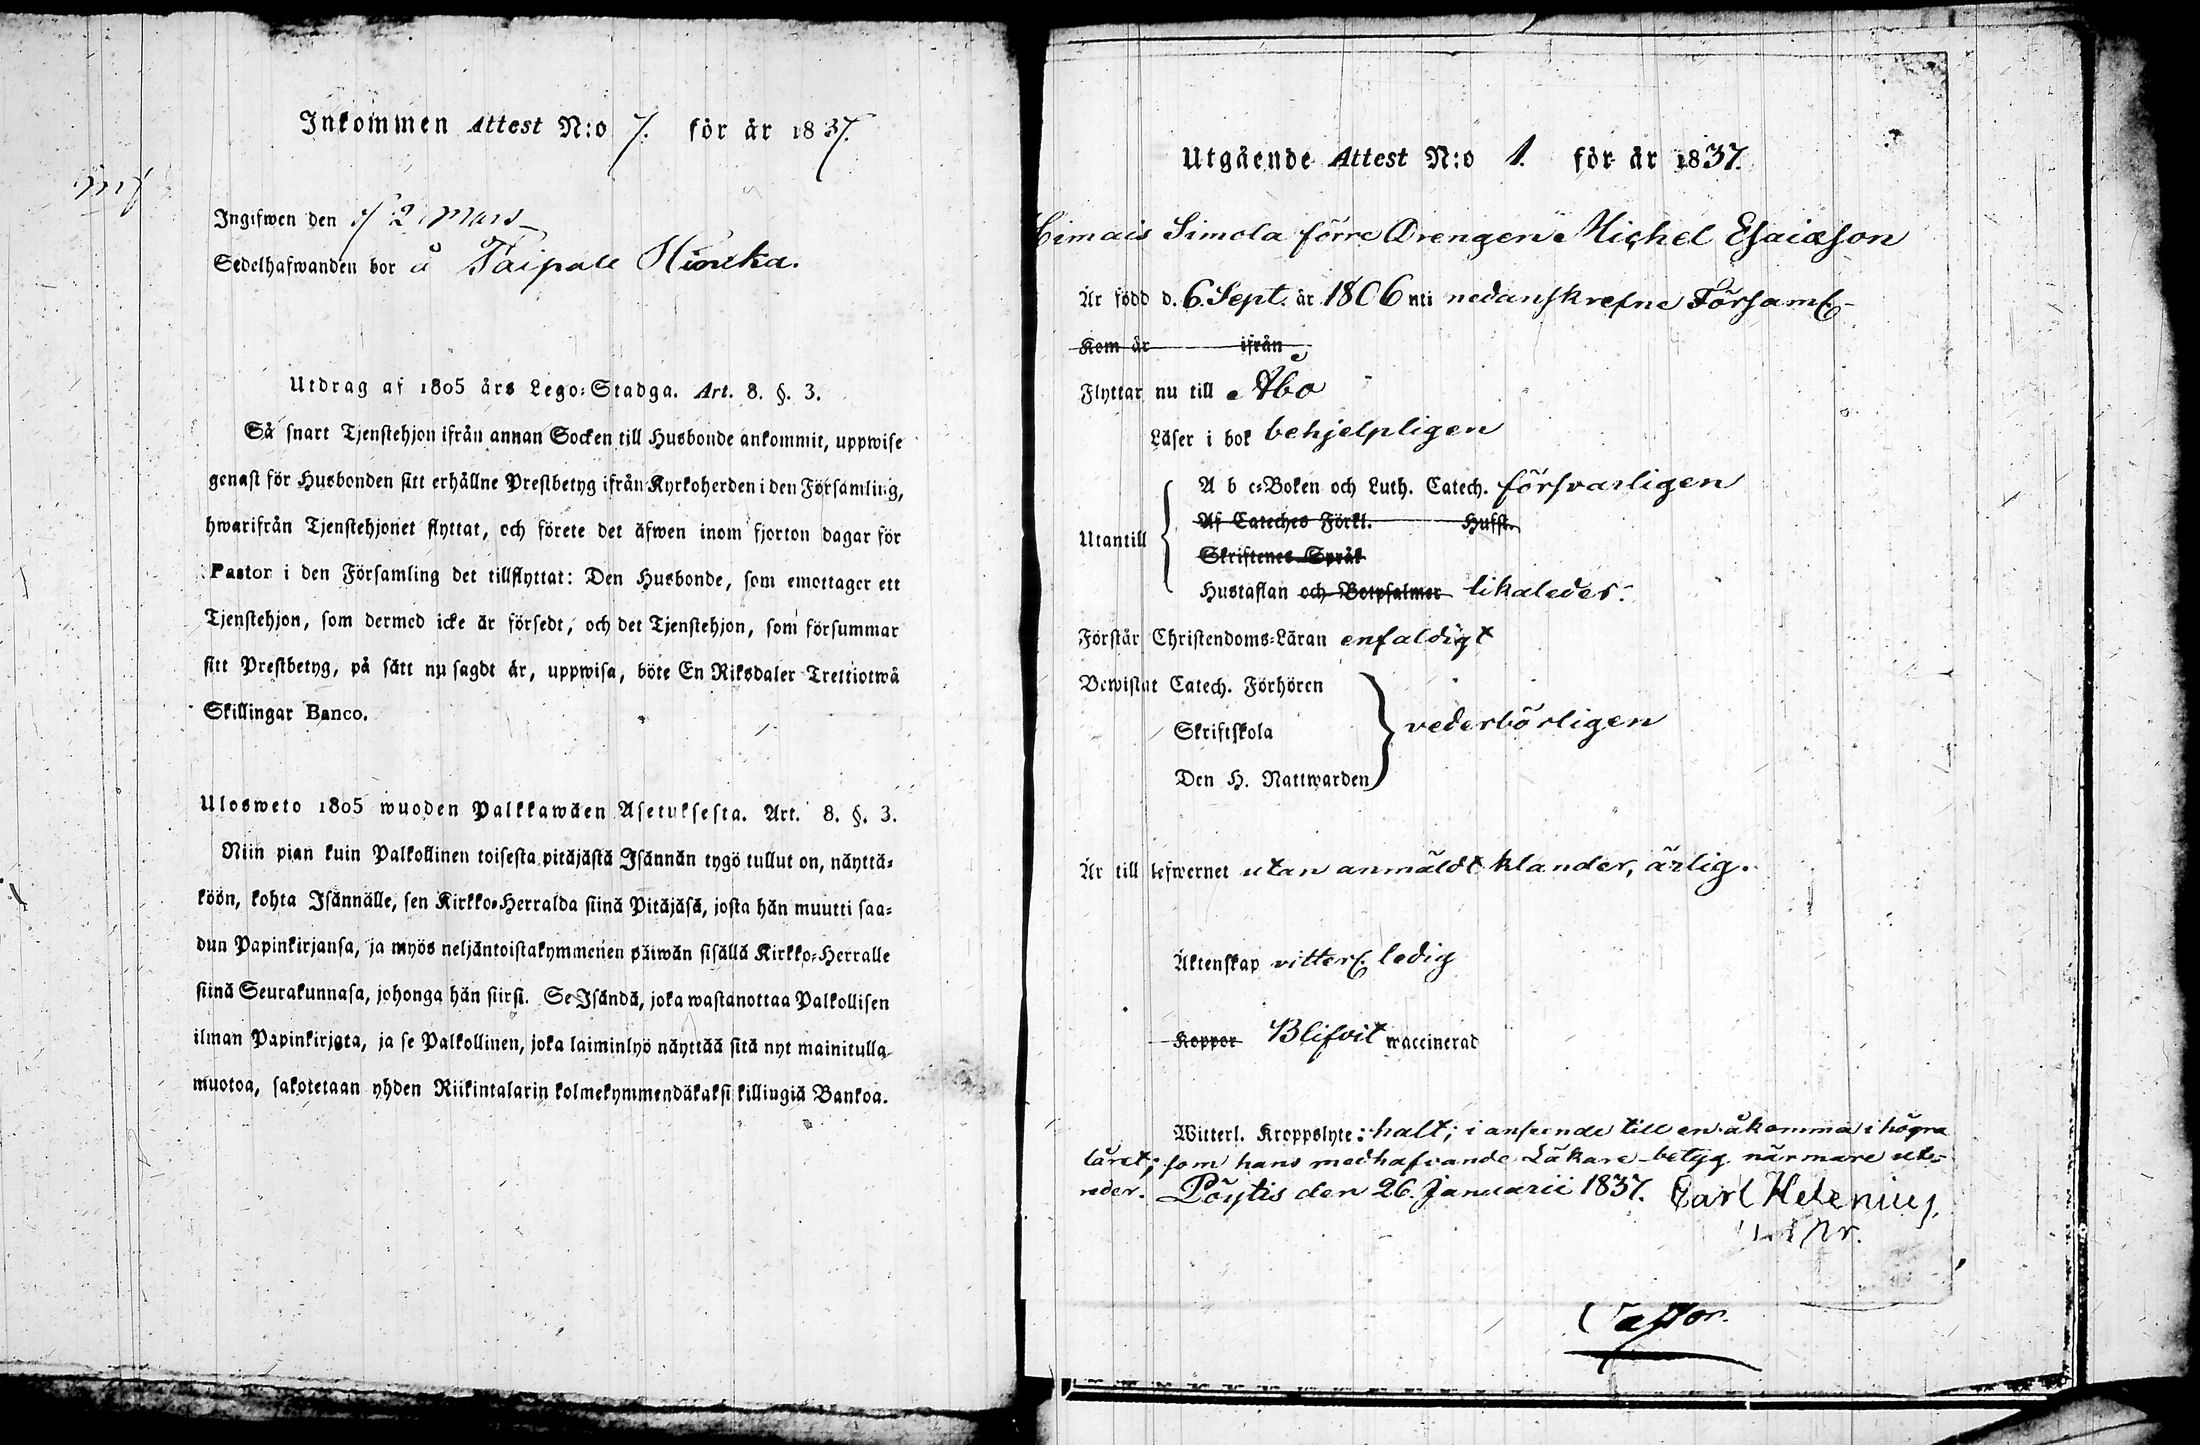 Inkommen Attest N:o 7. för år 1837.
Ingifwen den 2 Mars
Sedelhafwanden bor å Taipale
Utdrag af 1805 års Lego-Stadga. Art. 8. §. 3.
Så snart Tjenstehjon ifrån annan Socken till Husbonde ankommit, uppwise
genast för Husbonden sitt erhållne Prestbetyg ifrån Kyrkoherden i den Församling,
hwarifrån Tjenstehjonet flyttat, och förete det äfwen inom fjorton dagar för
Pastor i den Församling det tillflyttat: Den Husbonde, som emottager ett
Tjenstehjon, som dermed icke är försedt, och det Tjenstehjon, som försummar
sitt Prestbetyg, på sätt nu sagdt är, uppwisa, böte En Riksdaler Trettiotwå
Skillingar Banco.
Ulosweto 1805 wuoden Palkkawäen Asetuksesta. Art. 8. §. 3.
Niin pian kuin Palkollinen toisesta pitäjästä Isännän tygö tullut on, näyttä-
köön, kohta Isännälle, sen Kirkko-Herralda siinä Pitäjäsä, josta hän muutti saa-
dun Papinkirjansa, ja myös neljäntoistakymmenen päiwän sisällä Kirkko-Herralle
siinä Seurakunnasa, johonga hän siirsi. Se Isändä, joka wastanottaa Palkollisen
ilman Papinkirjata, ja se Palkollinen, joka laiminlyö näyttää sitä nyt mainitulla
muotoa, sakotetaan yhden Riikintalarin kolmekymmendäkaksi killingiä Bankoa.
Utgående Attest N:o 1. för år 1837.
Simola förre Drengen Michel Esaiasson
Är född d. 6 Sept. år 1806 uti nedanskrefne Församl.
Kom år ifrån
Flyttar nu till Åbo
Läser i bok behjelpligen
A b c-Boken och Luth. Catech. försvarligen
Af Cateches Förkl. Husst.
Utantill
Skriftenes Språk
Hustaflan och Botpsalmer likaledes.
Förstår Christendoms-Läran enfaldigt
Bewistat Catech. Förhören
Skriftskola vederbörligen
Den H. Nattwarden
Är till lefwernet utan anmäldt klander, ärlig.
Äktenskap vitterl. ledig
Koppor Blifvit waccinerad
Witterl. Kroppslyte: halt; i anseende till en åkomma i högra
låret; som hans medhafvande Läkare-betyg närmare ut-
reder. Pöytis den 26. Januarii 1837. Carl Helenius,
Pastor.